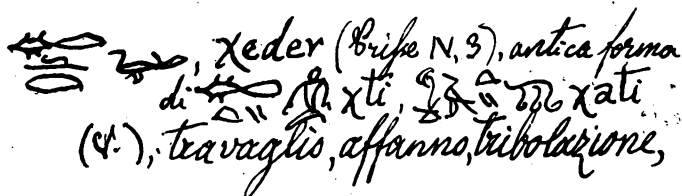 , χeder (Crisse N, 3), antica forma
di χti, χati
(V.), travaglio, affanno, tribolazione,